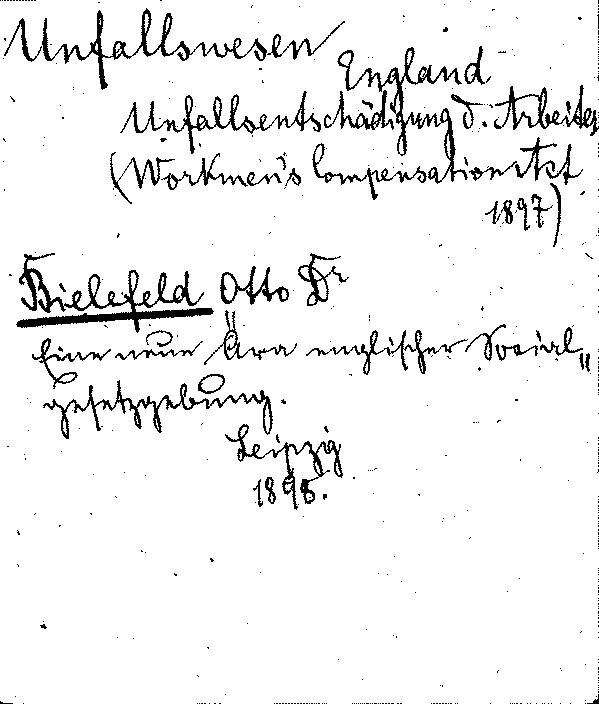 Unfallswesen
England
Unfallsentschädigung d. Arbeiter
(Workmen's Compensation Act
1897)
Bielefeld Otto Dr
Eine neue Ära englischer Social„
gesetzgebung.
Leipzig
1898.